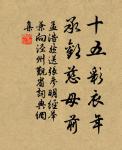 十五彩衣年
承歡慈母前
孟浩然送張參明經舉
兼向涇州覲省詞典網
集